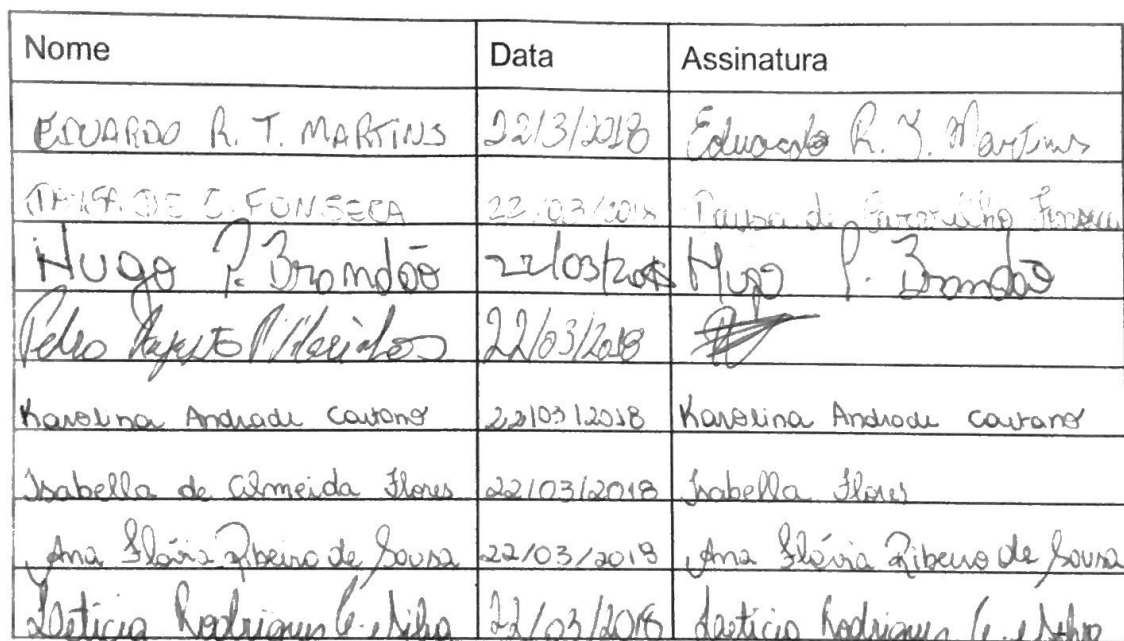 Nome Data Assinatura
EDUARDO R. T. MARTINS 22/3/2018 Eduardo R. T. Martins
DE C. FONSECA 22/03/2018 de Fonseca
Hugo P. Brandão 22/03/2018 Hugo P. Brandão
Pedro Augusto 22/03/2018
Karolina Andrade Caetano 22/03/2018 Karolina Andrade Caetano
Isabella de Almeida Flores 22/03/2018 Isabella Flores
Ana Flávia Ribeiro de Sousa 22/03/2018 Ana Flávia Ribeiro de Sousa
Letícia Rodrigues C. e Silva 22/03/2018 Letícia Rodrigues C. e Silva